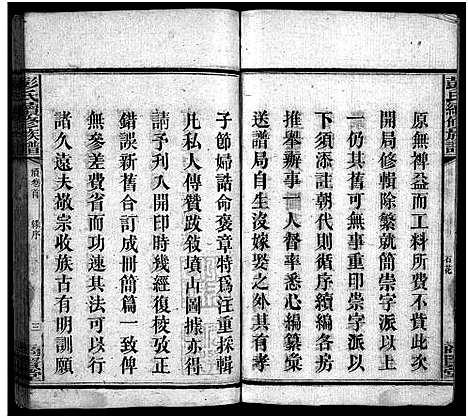 彭氏續修族譜
原無裨益而工料所費不貲此次
開局修輯除繁就簡崇字派以上
一仍其舊可無事重印自崇字派
下須添註朝代則循序續編各房
推舉辦事一人督率悉心編纂彙
送譜局自生沒嫁娶之外其有孝
子節婦誥命褒章特爲注重採輯
凡私人傳贊跋敘墳山圖據亦可
請予刊入開印時幾經復校攷正
錯誤新舊合訂成冊簡篇一致件
無參差費省而功速其法可久可
諸久遠夫敬宗收族古有明訓願
彭氏續修族譜
續卷首
緣序
三